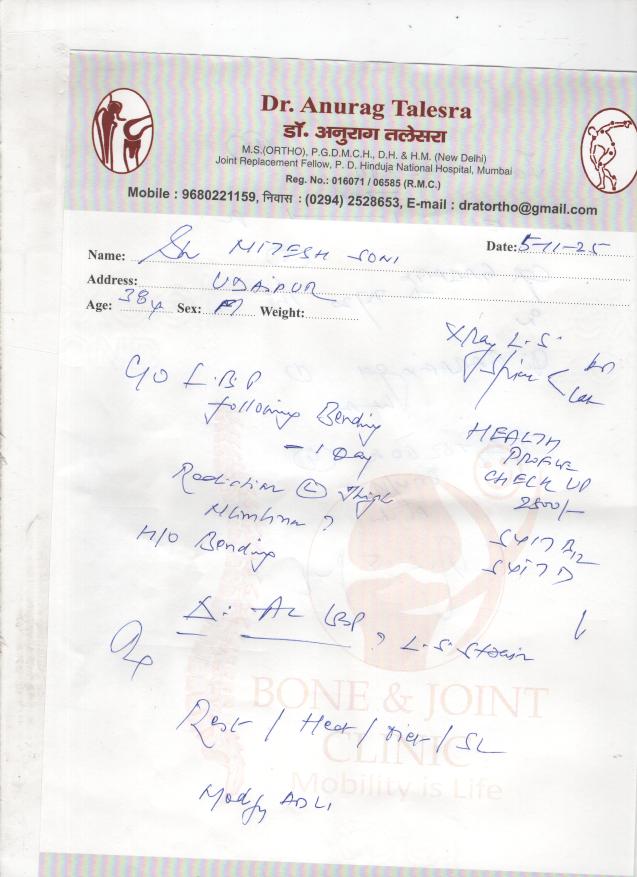 Dr. Anurag Talesra
डॉ. अनुराग तलेसरा
M.S.(ORTHO), P.G.D.M.C.H., D.H. & H.M. (New Delhi)
Joint Replacement Fellow, P. D. Hinduja National Hospital, Mumbai
Reg. No.: 016071 / 06585 (R.M.C.)
Mobile : 9680221159, निवास : (0294) 2528653, E-mail : dratortho@gmail.com
Name: Sh MITESH SONI
Date: 5-11-25
Address: UDAIPUR
Age: 38y Sex: M Weight:
Xray L.S.
Spine < Lat
C/O L.B.P
following Bending
- 1 Day
Radiation (L) Thigh
?
H/O Bending
HEALTH
PROFILE
CHECK UP
2800/-
S VIT B12
S VIT D
Δ: Ac LBP ? L.S. Strain
Rx
BONE & JOINT
CLINIC
Mobility is Life
Rest / Heat / Diet / SL
Modify ADL